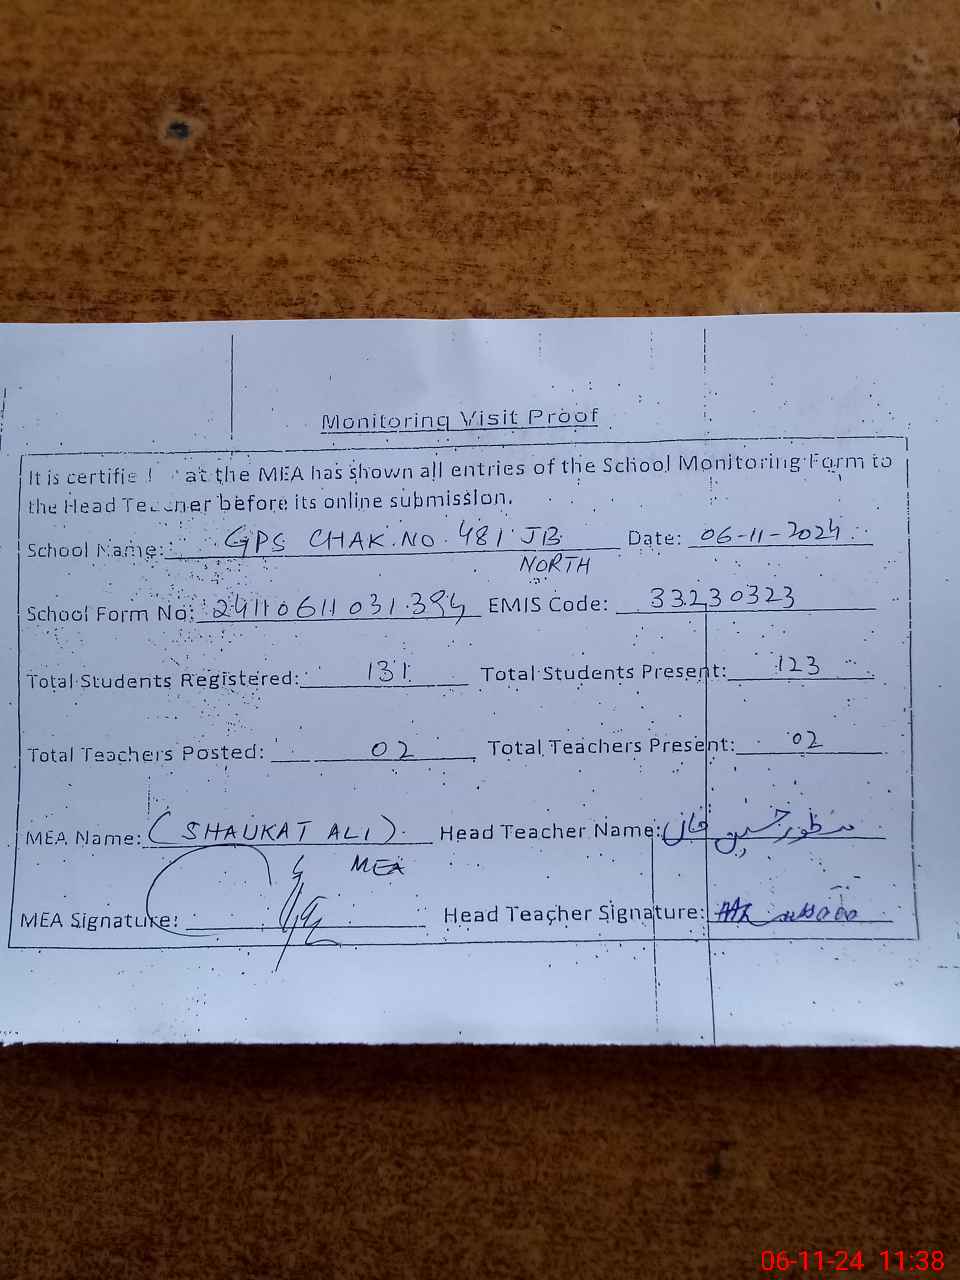 Monitoring Visit Proof
It is certifie at the MEA has shown all entries of the School Monitoring Form to
the Head Teacher before its online submission.
School Name: GPS CHAK.NO.481 JB Date: 06-11-2024
NORTH
School Form No: 24110611031394 EMIS Code: 33230323
Total Students Registered: 131 Total Students Present: 123
Total Teachers Posted: 02 Total Teachers Present: 02
MEA Name: (SHAUKAT ALI). Head Teacher Name: منظور حسین خان
MEA
MEA Signature: Head Teacher Signature:
06-11-24 11:38